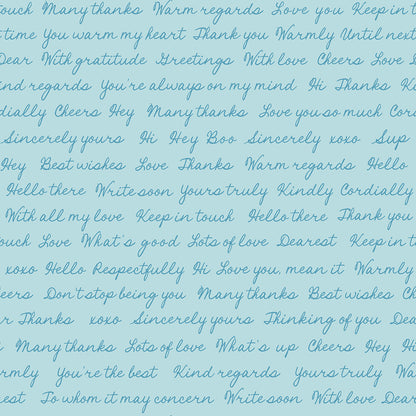 ouch Many thanks Warm regards Love you Keep in t
time You warm my heart Thank you Warmly Until next
Dear With gratitude Greetings With love Cheers Love D
ind regards You're always on my mind Hi Thanks K
dially Cheers Hey Many thanks Love you so much Cord
Sincerely yours Hi Hey Boo Sincerely xoxo Sup
Hey Best wishes Love Thanks Warm regards Hello
Hello there Write soon Yours truly Kindly Cordially
With all my love Keep in touch Hello there Thank you
ouch Love What's good Lots of love Dearest Keep in t
xoxo Hello Respectfully Hi Love you, mean it Warmly
eers Don't stop being you Many thanks Best wishes Ch
ar Thanks xoxo Sincerely yours Thinking of you Dea
Many thanks Lots of love What's up Cheers Hey Hi
rmly You're the best Kind regards Yours truly Wa
est To whom it may concern Write soon With love Dear